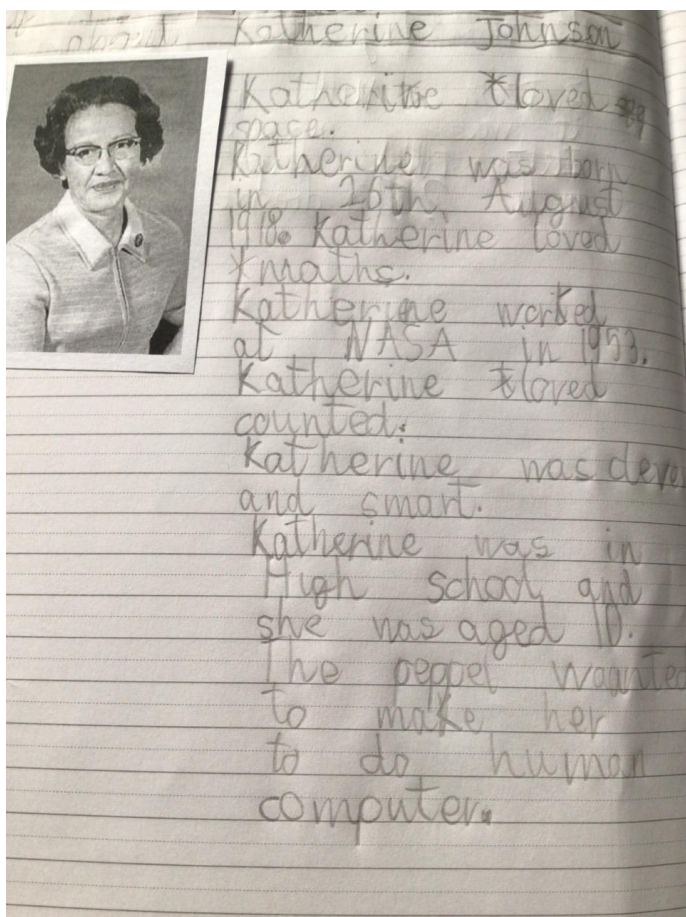 about Katherine Johnson
Katherine *loved
space.
Katherine was born
in 26th August
1918. Katherine loved
*maths.
Katherine worked
at NASA in 1953.
Katherine *loved
counted.
Katherine was cleve
and smart.
Katherine was in
High school and
she was aged 10.
The peppel waanted
to make her
to do human
computer.